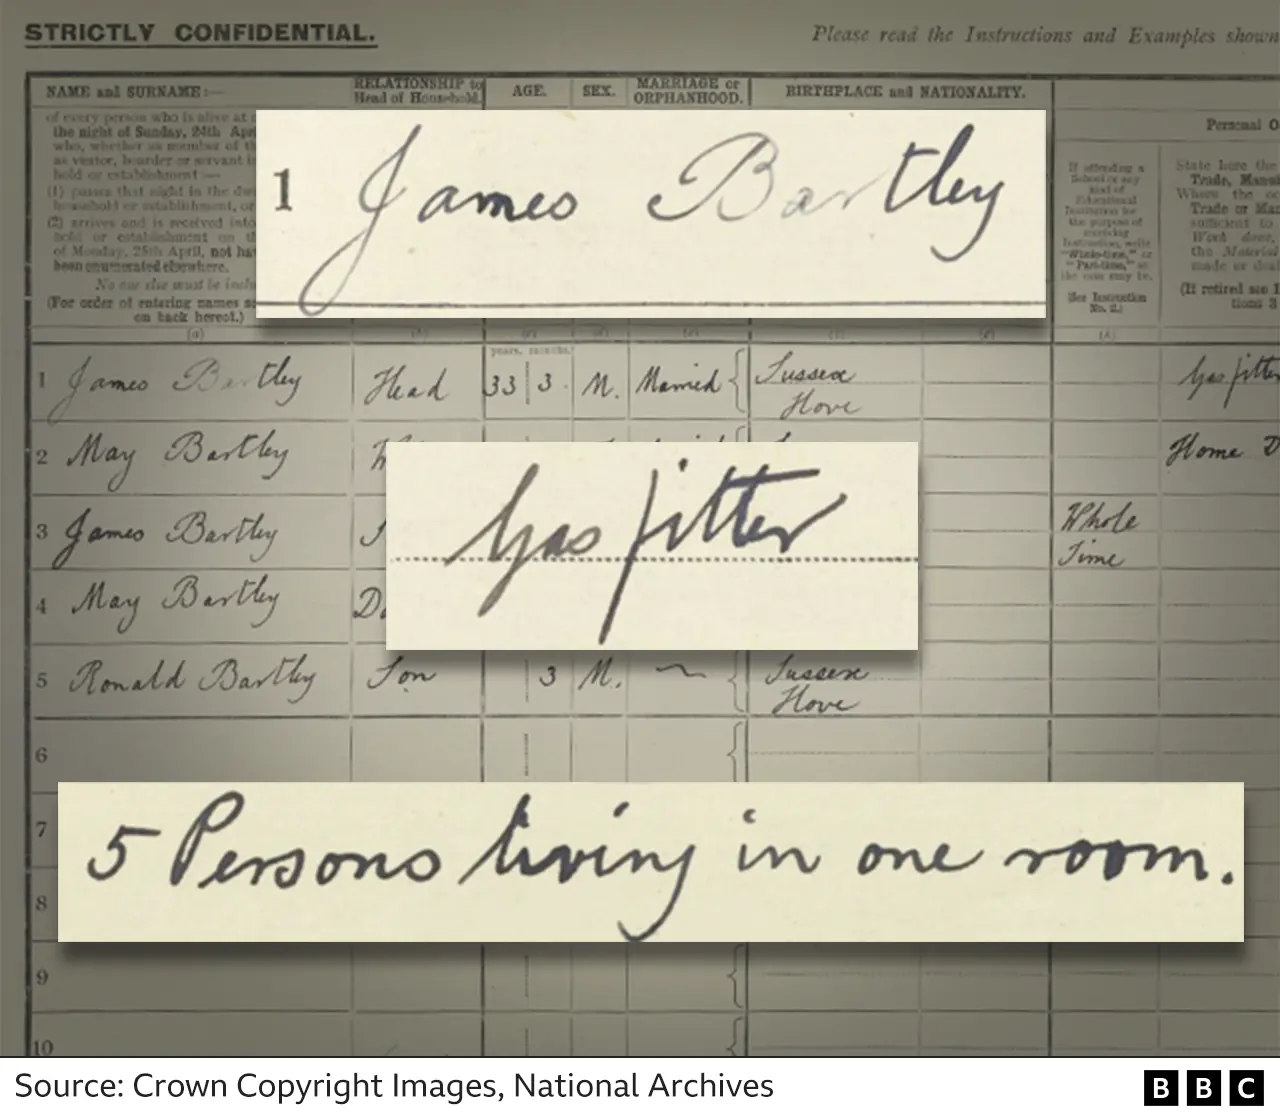 STRICTLY CONFIDENTIAL.
Please read the Instructions and Examples shown
NAME and SURNAME:—
RELATIONSHIP to
Head of Household.
AGE.
SEX.
MARRIAGE or
ORPHANHOOD.
BIRTHPLACE and NATIONALITY.
Personal O
of every person who is alive at
the night of Sunday, 24th Apr
who, whether as member of th
as visitor, boarder or servant i
hold or establishment :—
(1) passes that night in the dw
household or establishment, or
(2) arrives and is received into
hold or establishment on th
of Monday, 25th April, not ha
been enumerated elsewhere.
No one else must be inclu
(For order of entering names s
on back hereof.)
(a)
If attending a
School or any
kind of
Educational
Institution for
the purpose of
receiving
Instruction, write
"Whole-time," or
"Part-time," as
the case may be.
(See Instruction
No. 2.)
State here the
Trade, Manu
Where the oc
Trade or Ma
sufficient to
Work done,
the Material
made or deal
(If retired see I
tions 3
1 James Bartley
years. months.
1 James Bartley Head 33 3 M. Married Sussex
Hove
Gas fitter
2 May Bartley
Home D
3 James Bartley
Whole
Time
4 May Bartley
5 Ronald Bartley Son 3 M. Sussex
Hove
Gas fitter
6
7
8
9
10
5 Persons living in one room.
Source: Crown Copyright Images, National Archives
BBC